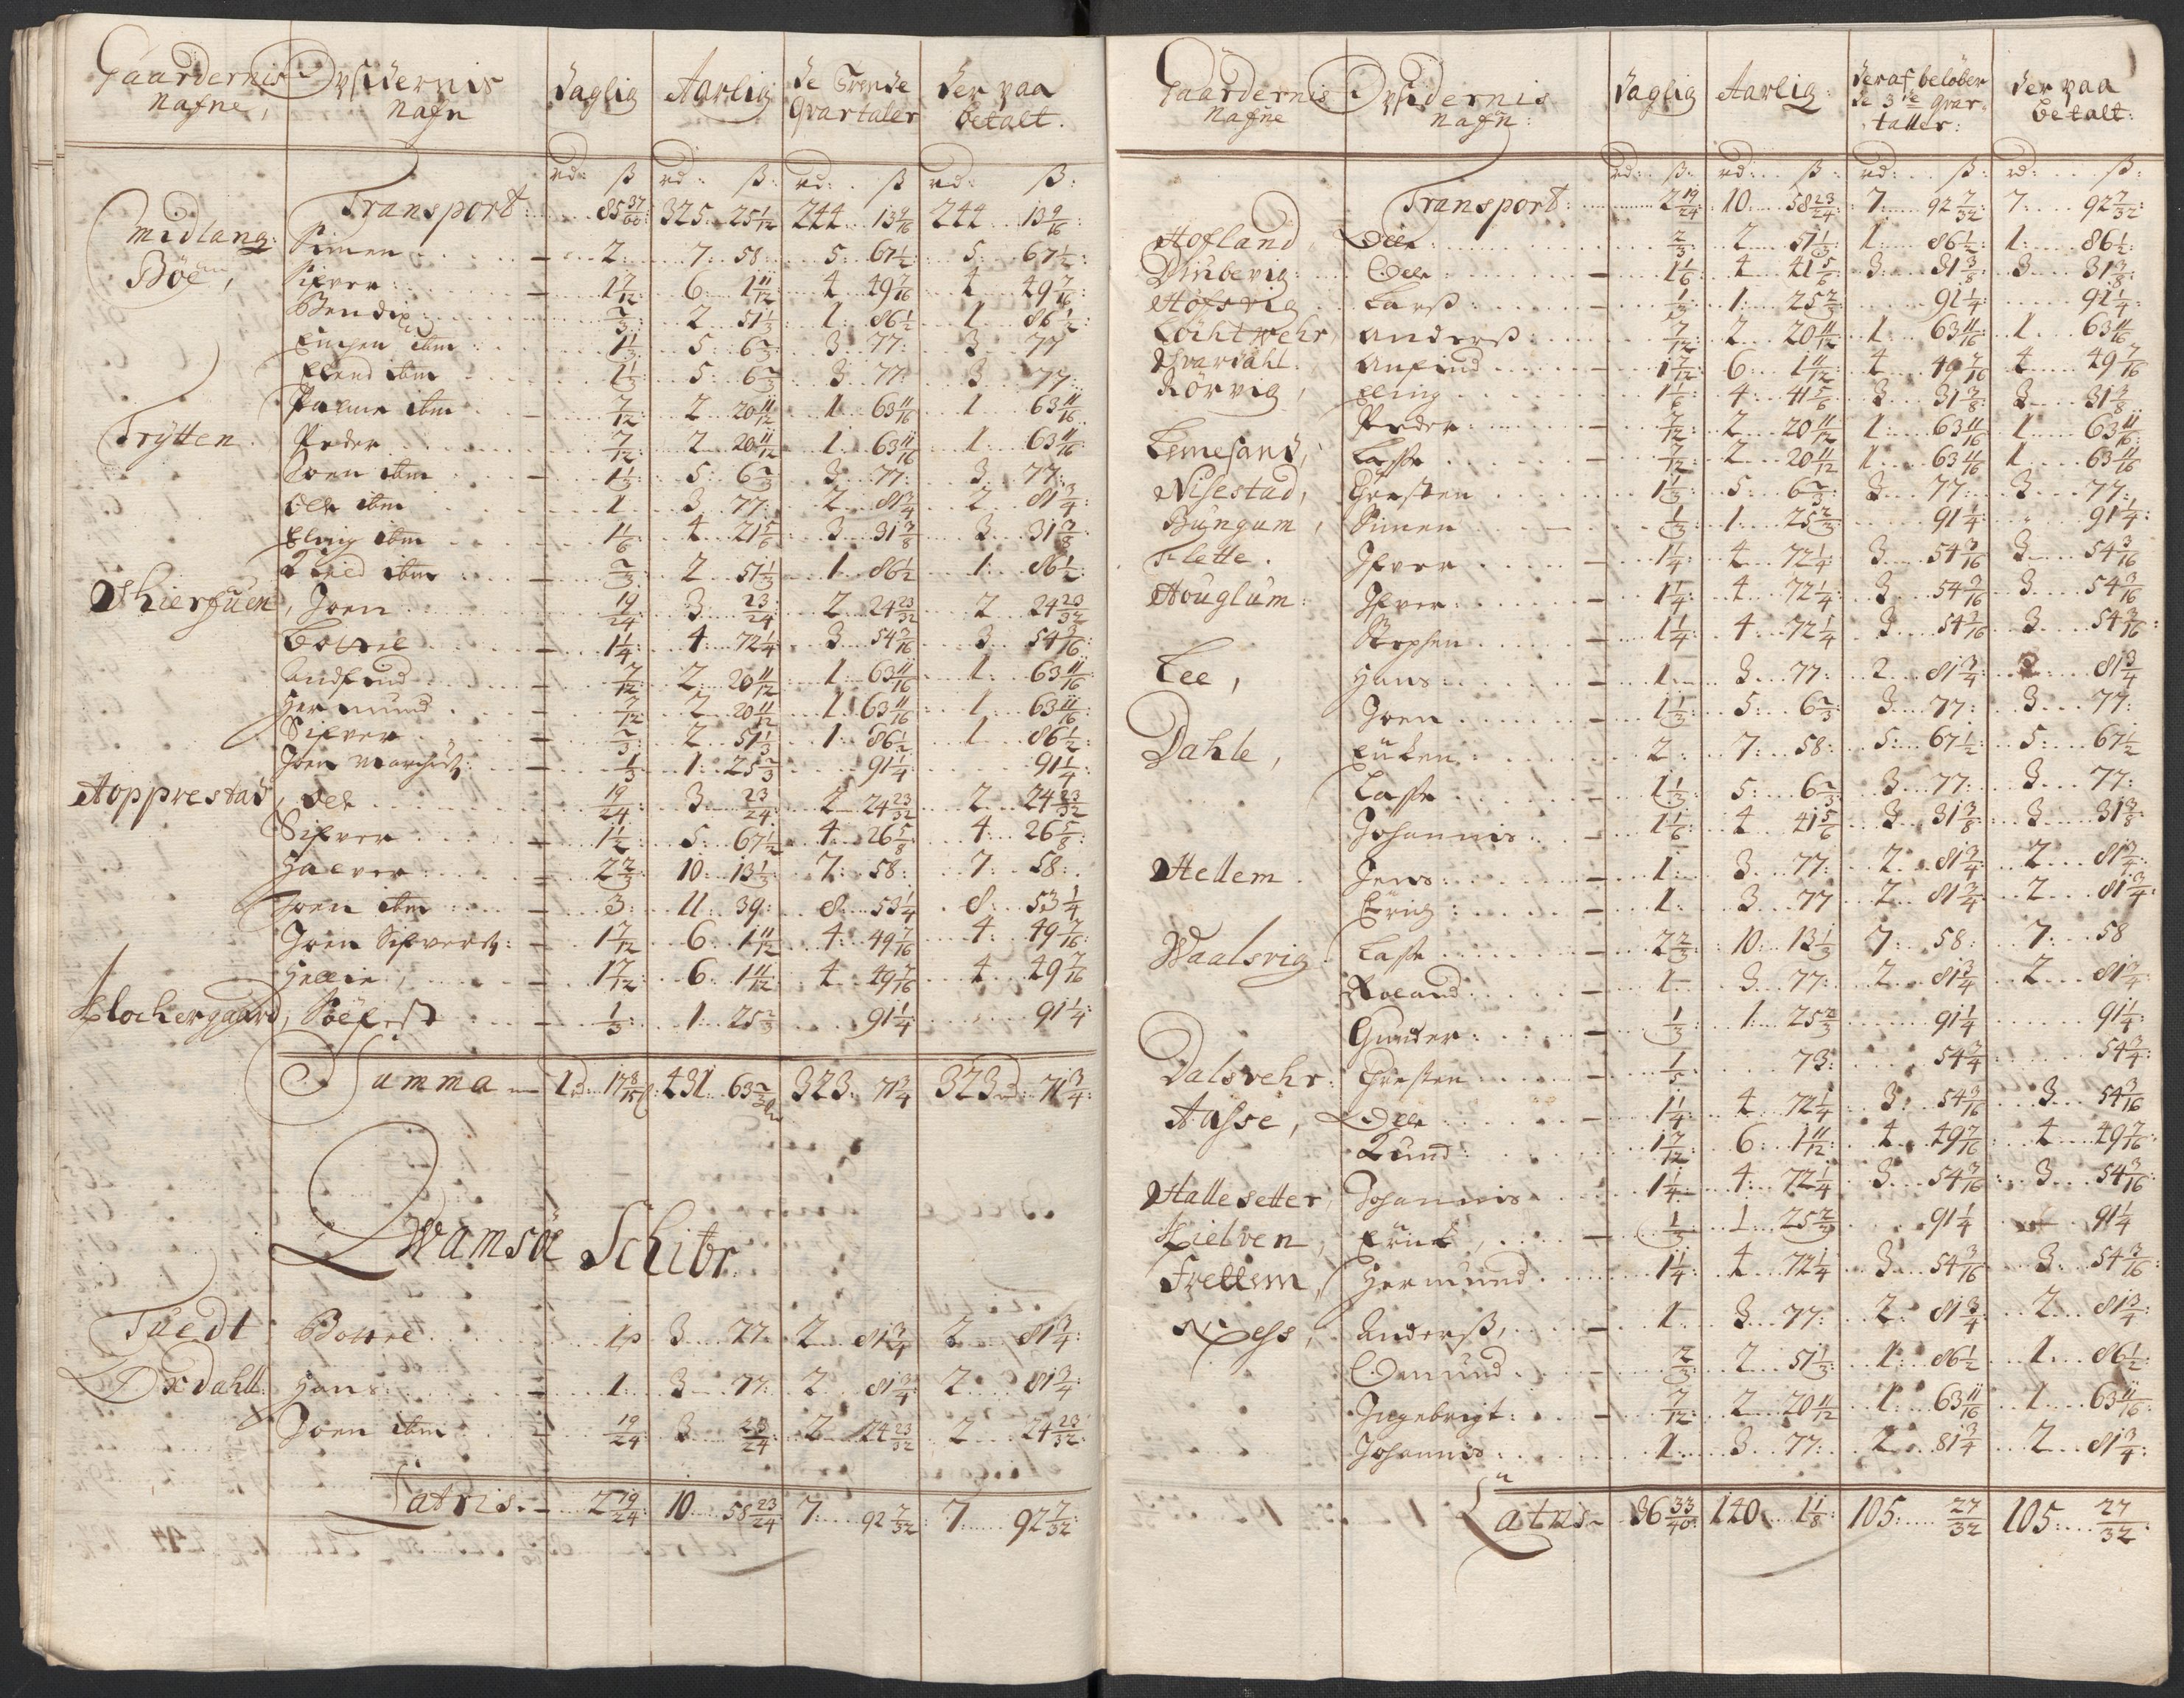 Gaardernis Nafne, Opsidernis Nafn Daglig Aarlig de Trende Qvartaler Der paa betalt.
rd: ß rd: ß: rd: ß rd: ß:
Transport: 85 37/60: 325: 25 1/12 244 13 9/16 244 13 9/16
Midlang: Böe, Simen 2: 7: 58: 5: 67 1/2: 5: 67 1/2:
Sifver 1 7/12: 6: 1 11/12 4 49 7/16 4 49 7/16:
Bendix 2/3: 2 51 1/3: 1: 86 1/2 1 86 1/2:
ibm 1 1/3: 5: 6 2/3: 3 77: 3 77
Elend ibm 1 1/3: 5: 6 2/3: 3 77: 3 77:
ibm 7/12: 2 20 11/12 1 63 11/16 1 63 11/16
Trytten Peder 7/12: 2 20 11/12 1: 63 11/16 1: 63 11/16
Joen ibm 1 1/3: 5: 6 2/3 3 77: 3 77:
Ole ibm 1 3 77: 2 81 3/4 2 81 3/4:
Eling ibm 1 1/6: 4 21 5/6 3 31 3/8 3 31 3/8
ibm 2/3: 2 51 1/3 1 86 1/2 1: 86 1/2:
Joen 19/24: 3 23/24 2 24 23/32 2 24 23/32
Bottel 1 1/4: 4: 72 1/4 3 54 3/16 3 54 3/16:
Andfind 7/12: 2: 20 11/12 1: 63 11/16 1: 63 11/16
Hermund 7/12: 2 20 11/12 1: 63 11/16 1 63 11/16:
Sifver 2/3: 2 51 1/3 1: 86 1/2 1 86 1/2:
Joen 1/3 1: 25 2/3 91 1/4: 91 1/4:
Hopprestad, Ole 19/24 3 23/24: 2 24 23/32 2 24 23/32
Sifver 1 1/2: 5: 67 1/2 4: 26 5/8: 4: 26 5/8:
Halver 2 2/3: 10: 13 1/3: 7: 58: 7: 58:
Joen ibm 3: 11: 39: 8: 53 1/4 8: 53 1/4
Joen Sifvers: 1 7/12 6: 1 11/12 4: 49 7/16 4: 49 7/16:
Hellie 1 7/12: 6: 1 11/12: 4 49 7/16 4 49 7/16
Klochergaard, Söefest 1/3: 1: 25 2/3 91 1/4 91 1/4:
Summa 1 rd: 17 8/15 ß: 431: 63 2/3 323: 71 3/4 323 rd: 71 3/4:
Qwamsöe Schibr
Tuedt Bottel 1 3 77 2 81 3/4 2 81 3/4:
Hans 1: 3 77: 2 81 3/4: 2 81 3/4:
Joen ibm 19/24: 3 23/24: 2 24 23/32 2 24 23/32:
Latris 2 19/24: 10 58 23/24: 7 92 7/32: 7 92 7/32:
Gaardernis Nafne Opsidernis Nafn: Daglig Aarlig: Deraf beløber de 3de Qvartaller: Der paa betalt:
rd: ß: rd: ß: rd: ß: rd: ß:
Transport: 2 19/24: 10: 58 23/24: 7: 92 7/32: 7: 92 7/32:
Hofland Ole 2/3: 2 51 1/3: 1: 86 1/2: 1: 86 1/2:
Diubevig: Ole 1 1/6: 4 41 5/6: 3: 31 3/8: 3 31 3/8:
Höfsvig Larß 1/3: 1: 25 2/3: 91 1/4: 91 1/4:
Anderß 7/12: 2 20 11/12: 1 63 11/16: 1 63 11/16
Svardahl Anfind 1 7/12: 6 1 11/12: 4 49 7/16 4 49 7/16
Rörvig, Eling 1 1/6: 4: 41 5/6: 3 31 3/8: 3 31 3/8
Peder 7/12: 2 20 11/12 1: 63 11/16 1 63 11/16:
Lemesand, Lasse 7/12: 2 20 11/12 1 63 11/16 1 63 11/16
Nisestad, Christen 1 1/3: 5: 6 2/3: 3 77: 3 77:
Bungum, Simen 1/3: 1: 25 2/3: 91 1/4: 91 1/4:
Flette. Ifver 1 1/4: 4 72 1/4: 3 54 3/16 3 54 3/16
Houglum: Ifver: 1 1/4: 4 72 1/4: 3 54 3/16 3 54 3/16
Stephen 1 1/4: 4: 72 1/4 3 54 3/16 3 54 3/16:
Lee, Hans 1 3 77: 2 81 3/4: 2 81 3/4
Joen 1 1/3: 5: 6 2/3: 3 77: 3 77:
Dahle, 2: 7: 58: 5: 67 1/2: 5: 67 1/2
Lasse 1 1/3: 5: 6 2/3 3 77: 3 77:
Johannis 1 1/6: 4 41 5/6 3 31 3/8: 3 31 3/8:
Hellem Jens 1: 3 77: 2 81 3/4: 2 81 3/4:
Erig 1: 3 77 2 81 3/4: 2 81 3/4:
Waalsvig Lasse 2 2/3: 10: 13 1/3 7: 58: 7: 58
Roland 1 3 77: 2 81 3/4 2 81 3/4:
Gunder 1/3: 1: 25 2/3 91 1/4 91 1/4:
Dalsvehr: Christen 1/5: 73: 54 3/4: 54 3/4:
Aasse, Ole 1 1/4: 4 72 1/4: 3: 54 3/16 3 54 3/16
1 7/12: 6: 1 11/12: 4 49 7/16: 4 49 7/16:
Hallesetter, Johannis 1 1/4: 4: 72 1/4 3 54 3/16: 3 54 3/16:
Kielven, Erick, 1/3: 1 25 2/3 91 1/4 91 1/4
Frettem, Hermund 1 1/4: 4 72 1/4 3 54 3/16 3 54 3/16:
Ness, Anderß, 1 3 77: 2: 81 3/4: 2 81 3/4:
Omund 2/3: 2 51 1/3: 1: 86 1/2 1 86 1/2:
Ingebrigt 7/12: 2 20 11/12 1: 63 11/16 1 63 11/16:
Johannis 1 3 77: 2 81 3/4 2 81 3/4:
Latris 36 33/40: 140 1 1/8: 105: 27/32 105: 27/32: